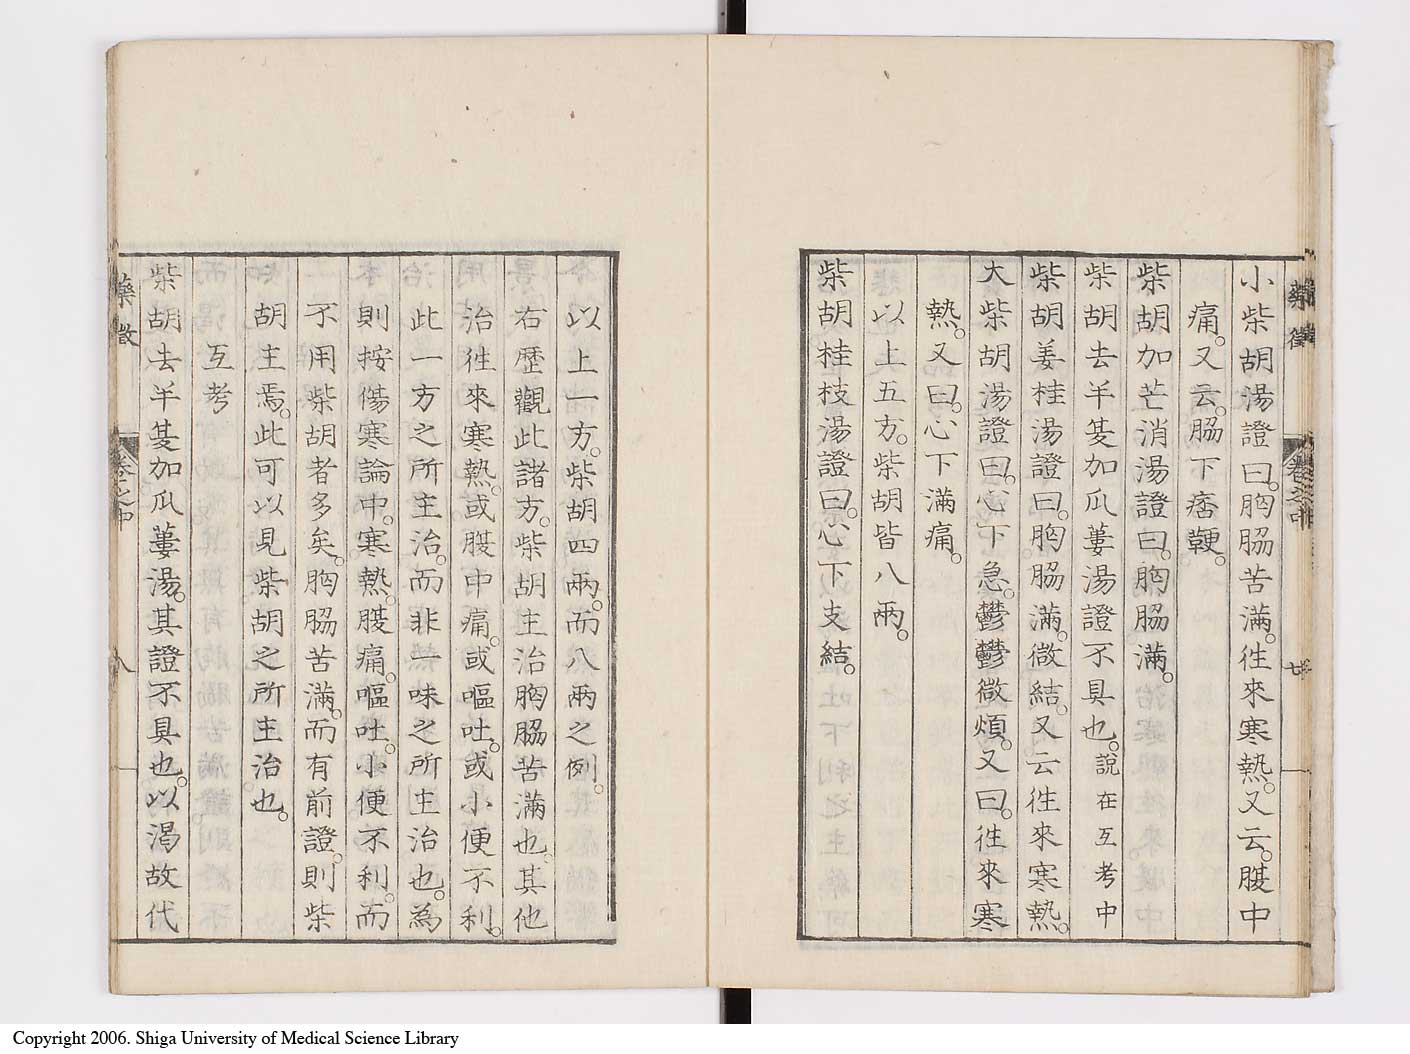 小柴胡湯證曰。胸脇苦滿。徃來寒熱。又云。腹中
痛。又云。脇下痞鞕。
柴胡加芒消湯證曰。胸脇滿。
柴胡去半夏加瓜蔞湯證不具也。說在互考中
柴胡姜桂湯證曰。胸脇滿。微結。又云徃來寒熱。
大柴胡湯證曰。心下急。鬱鬱微煩。又曰。徃來寒
熱。又曰。心下滿痛。
以上五方。柴胡皆八兩。
柴胡桂枝湯證曰。心下支結。
以上一方。柴胡四兩。而八兩之例。
右歷觀此諸方。柴胡主治胸脇苦滿也。其他
治徃來寒熱。或腹中痛。或嘔吐。或小便不利。
此一方之所主治。而非一味之所主治也。為
則按傷寒論中。寒熱。腹痛。嘔吐。小便不利。而
不用柴胡者多矣。胸脇苦滿。而有前證。則柴
胡主焉。此可以見柴胡之所主治也。
互考
柴胡去半夏加瓜蔞湯。其證不具也。以渴故代
藥徵
卷之中
八
Copyright 2006. Shiga University of Medical Science Library